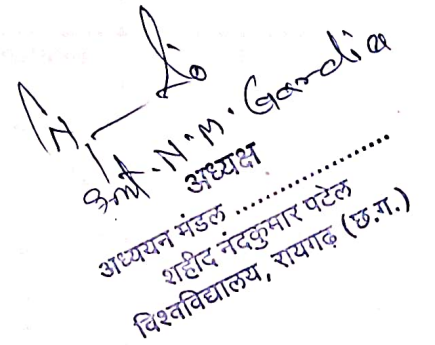 Smt. N. M. Gardia
अध्यक्ष
अध्ययन मंडल ........................
शहीद नंदकुमार पटेल
विश्वविद्यालय, रायगढ़ (छ.ग.)